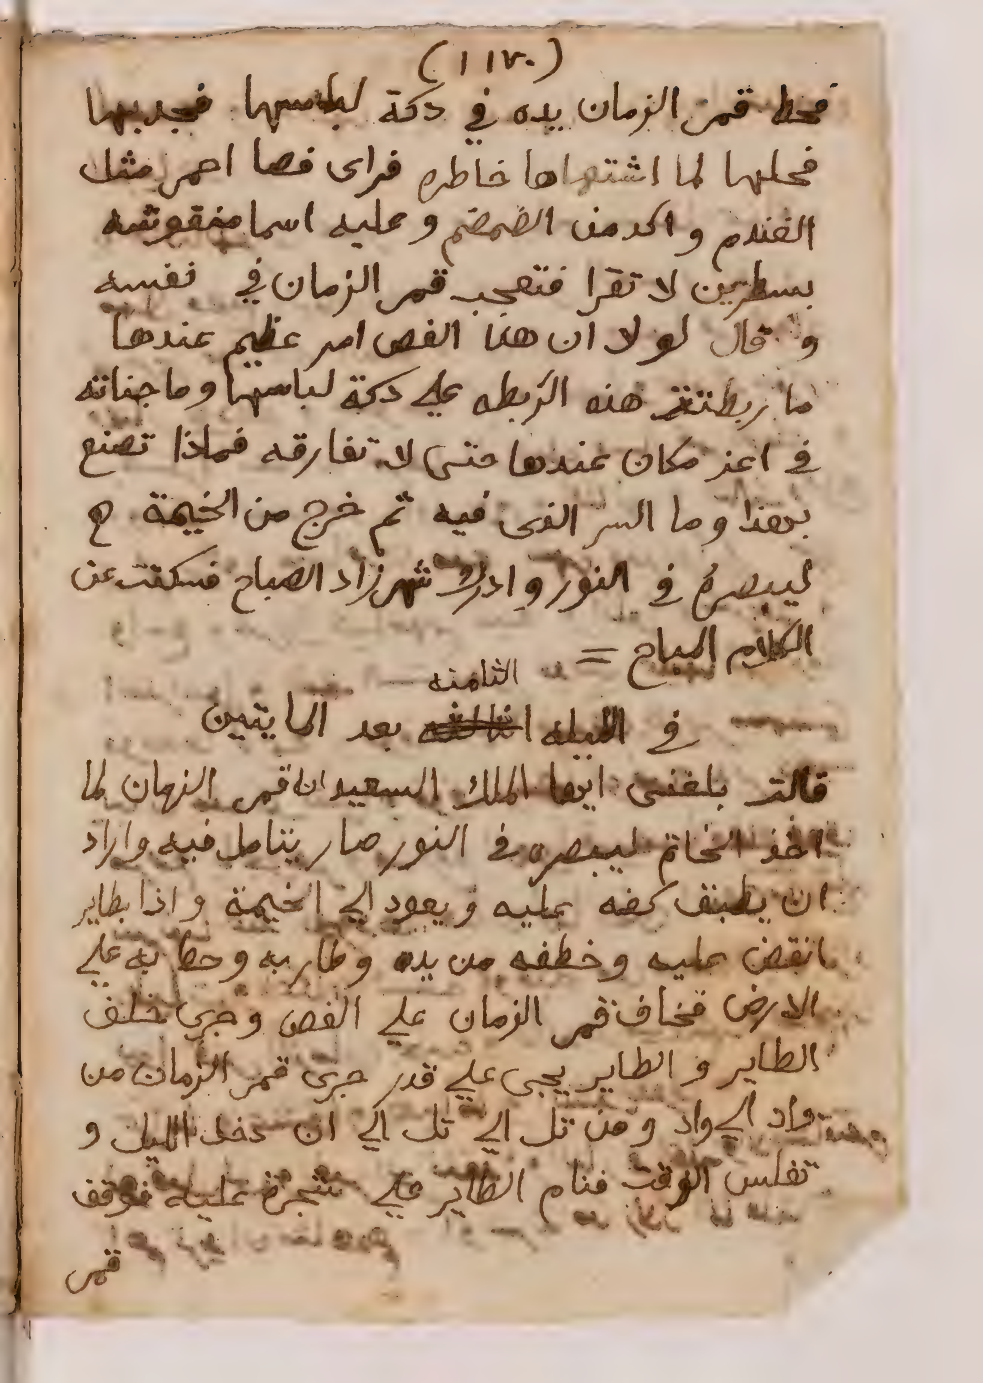 (١١٧٠)
فحط قمر الزمان يده في دكة لباسها فجدبها
فحلها لما اشتهاها خاطره فراى فصا احمر مثل
العندم واكد من وعليه اسما منقوشه
بسطرين لا تقرا فتعجب قمر الزمان في نفسه
وقال لولا ان هذا الفص امر عظيم عندها
ما ربطته هذه الربطه على دكة لباسها وما خباته
في اعز مكان عندها حتى لا تفارقه فماذا تصنع
بهذا وما السر الذى فيه ثم خرج من الخيمة
ليبصره في النور وادرك شهرزاد الصباح فسكتت عن
الكلام المباح =
الثامنه
في الليله بعد المايتين
قالت بلغنى ايها الملك السعيد ان قمر الزمان لما
اخذ الخاتم ليبصره في النور صار يتامل فيه واراد
ان يطبق كفه عليه ويعود الي الخيمة واذا بطاير
انقض عليه وخطفه من يده وطار به وحط به علي
الارض فخاف قمر الزمان علي الفص وجرى خلف
الطاير و الطاير يجى علي قدر جرى قمر الزمان من
واد الي واد ومن تل الي تل الي ان دخل الليل و
تغلس الوقت فنام الطاير علي شجرة عليه فوقف
قمر